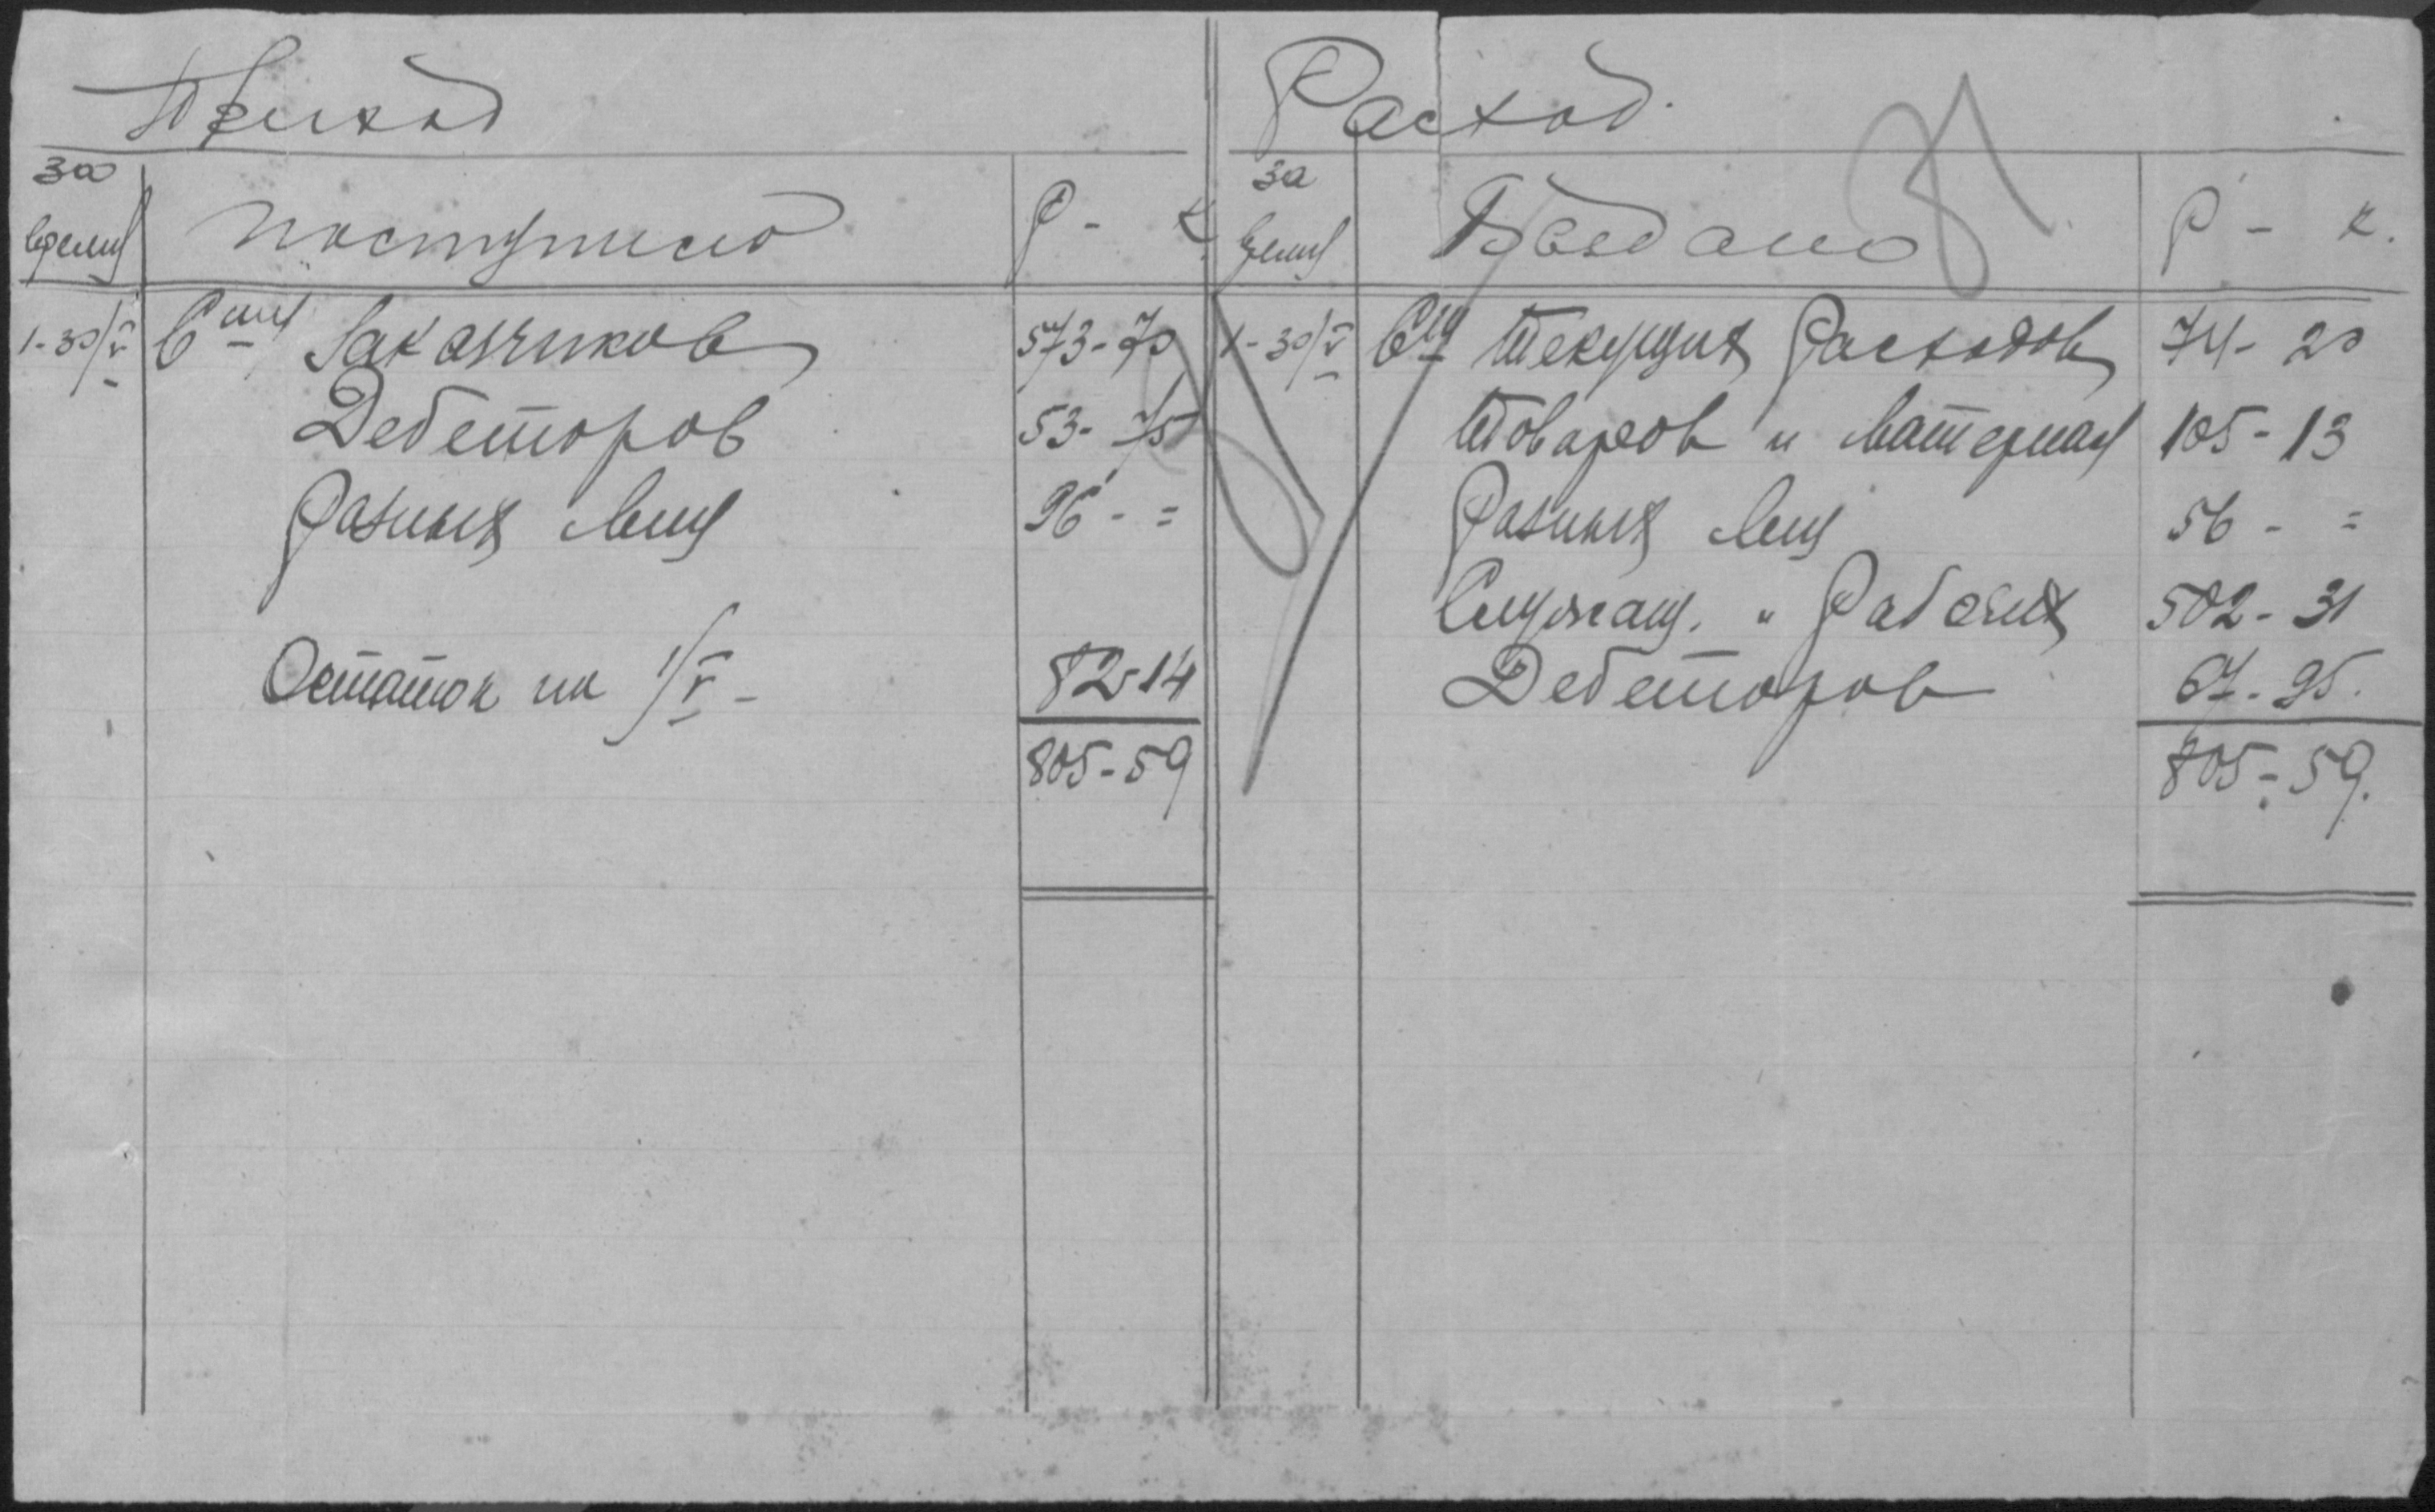 Приход
за
время
поступило
Р - К
1-30/V Счет Заказчиков 573-70
Дебеторов 53-75
Разных Лиц 96 - =
Остаток на 1/V - 82-14
805-59
Расход.
за
время
Выдано
Р - К.
1-30/V Сч Текущих Расходов 74-20
Товаров и Материал 105-13
Разных Лиц 56 - =
Служащ. и Рабочих 502-31
Дебеторов 67-95.
805-59.